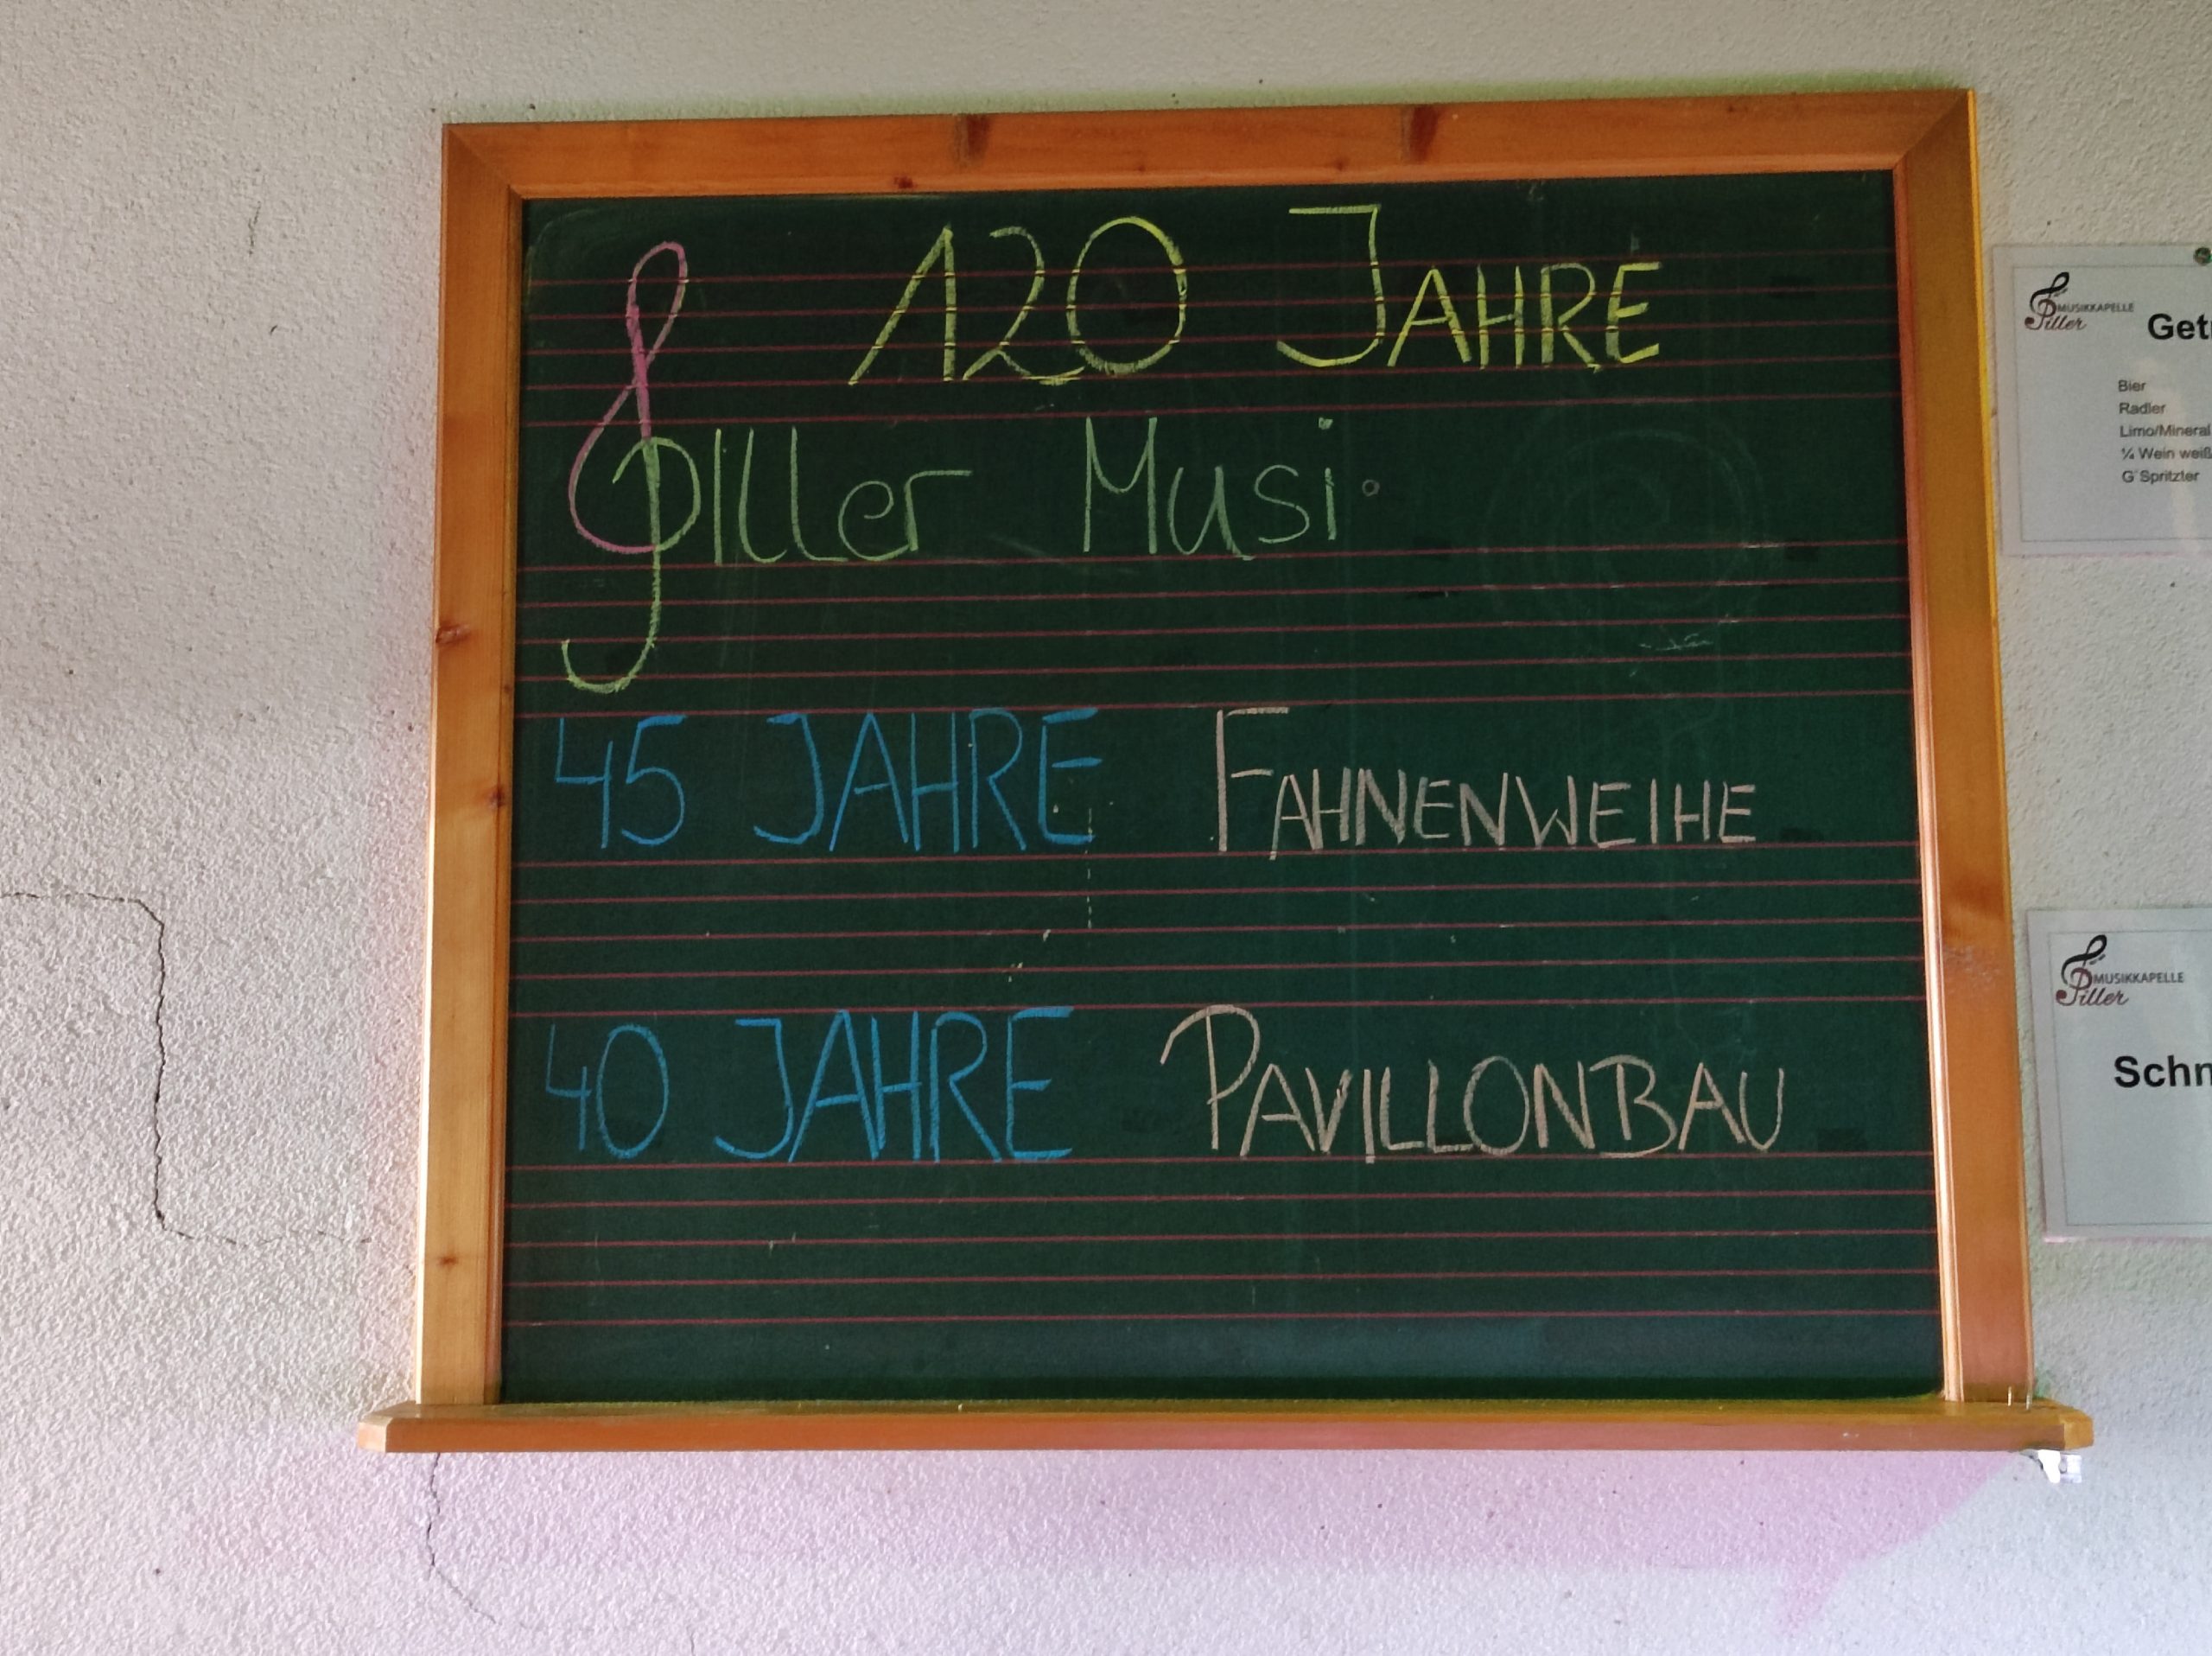 120 JAHRE
Piller Musi
45 JAHRE FAHNENWEIHE
40 JAHRE PAVILLONBAU
MUSIKKAPELLE
Piller
Bier
Radler
Limo/Mineral
¼ Wein weiß
G´Spritzler
MUSIKKAPELLE
Piller